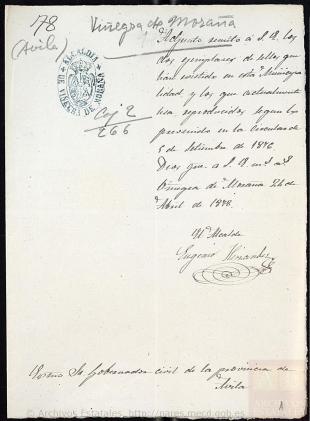 178
(Avila)
Viñegra de Moraña
ALCALDIA
DE VIÑEGRA DE MORAÑA
Caj 2
266
Adjunto remito á S. S. los
dos ejemplares de sellos que
han existido en esta Municipa
lidad y los que actualmente
usa reproducidos segun lo
prevenido en la circular de
5 de Setiembre de 1876
Dios gue. á S. S. m. a.
Viñegra de Moraña 26 de
Abril de 1878.
El Alcalde
Eugenio Hernandez
Sr. Gobernador civil de la provincia de
Avila
© Archivos Estatales, http://pares.mecd.gob.es